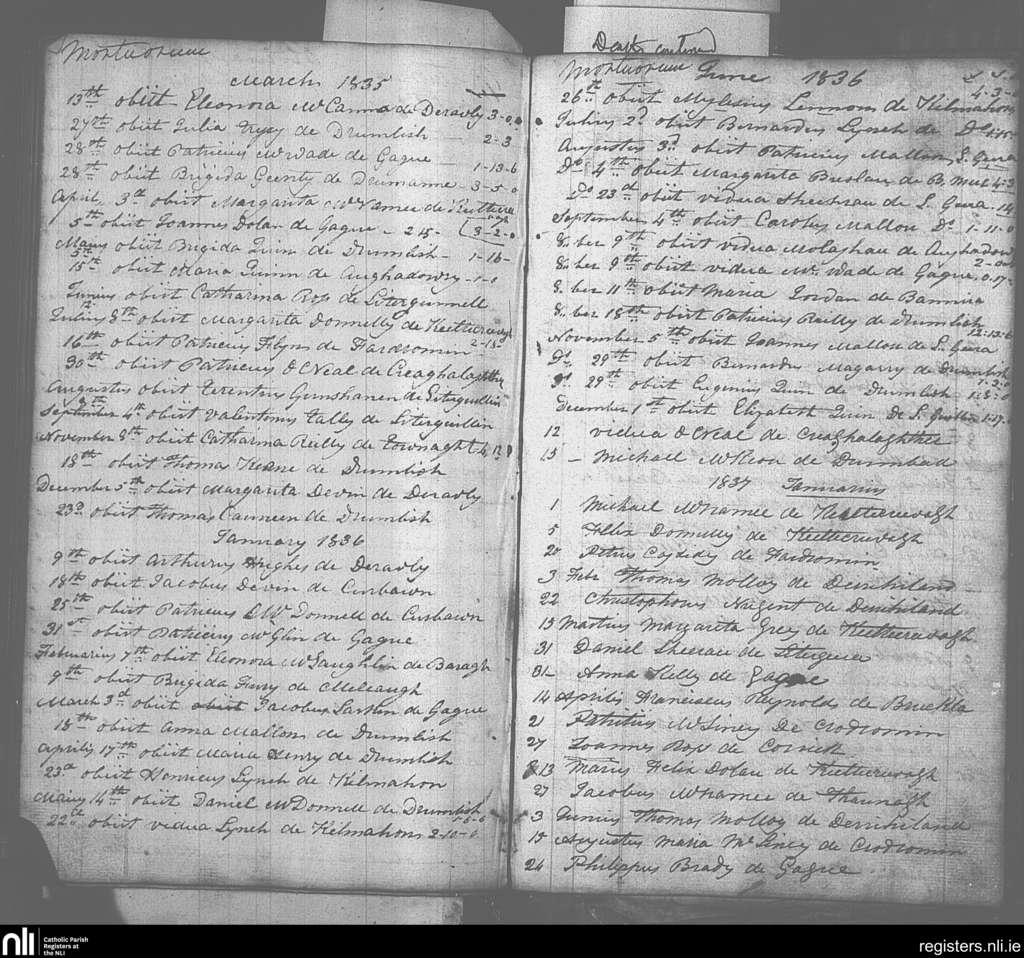 Mortuorum
March 1835
13th obiit Eleonora McCanna de Deravly 3-0-0
27th obiit Julia de Drumlish 2-3
28th obiit Patricius McWade de Gague 1-13-6
28th obiit Brigida Geenty de Drumanne 3-5-0
April 3d obiit Margarita McNamee de
5th obiit Joannes Dolan de Gague - 2 15- 3-2-0
Maius obiit Brigida Quin de Drumlish 1-16-
5th
15th obiit Maria Quinn de Aughadowry -1-0
Junius obiit Catharina Ross de Litergunnell
12
Julius 8th obiit Margarita Donnelly de Keetherevagh
16th obiit Patricius Flynn de Fardromin 2-15-
30th obiit Patricius O Neal de Creaghalaghthee
Augustus obiit Terentius Gunshanen de Litergullin
9th
September 4th obiit Valentinus Talley de Litergullin
November 8th obiit Catharina Reilly de
18th obiit Thomas Keane de Drumlish
December 5th obiit Margarita Devin de Deravly
23d obiit Thomas Canneen de Drumlish
January 1836
9th obiit Arthurus Hughes de Deravly
18th obiit Jacobus Devin de Curbawn
25th obiit Patricius McDonnell de Curbawn
31st obiit Patricius McGlin de Gague
Februarius 7th obiit Eleonora McLaughlin de Baragh
9th obiit Brigida Fury de Meleaugh
March 3d obiit obiit Jacobus Larkin de Gague
18th obiit Anna Mallon de Drumlish
Aprilis 17th obiit Maria Henry de Drumlish
23d obiit Henricus Lynch de Kilmahon
Maius 14th obiit Daniel McDonnell de Drumlish
22d obiit vidua Lynch de Kilmahon 2-10-0
Deaths continued
Mortuorum June 1836
26th obiit Mylesius Lennon de Kilmahon 4-3-0
Julius 2d obiit Bernardus Lynch de Do
Augustus 3d obiit Patricius Mallon L. Geera
Do 4th obiit Margarita Breslan de B. Muck 4-3
Do 23d obiit vidua Sheehan de L. Geera -14
September 4th obiit Carolus Mallon Do 1-11-0
8.ber 9th obiit vidua de Aughadow
8.ber 9th obiit vidua McWade de Gague
8.ber 11th obiit Maria Jordan de Bannua
8.ber 18th obiit Patricius Reilly de Drumlish
November 5th obiit Joannes Mallon de L. Geera
Do 29th obiit Bernardus Magarry de Drumlish
Do 29th obiit Eugenius Quin de Drumlish
December 1st obiit Elizabeth Quin de L. Gullin 1-17-0
12 vidua O Neal de Creaghalaghthee
15 - Michael McKeon de Drumbad
1837 Januarius
1 Michael McNamee de Keetherevagh
5 Felix Donnelly de Keetherevagh
20 Petrus Cassidy de Fardromin
3 Feb: Thomas Molloy de Derrihiland
22 Christophorus Nugent de Derrihiland
15 Martius Margarita Grey de Keetherevagh
31 Daniel Sheeran de Litergeera
31 Anna Kelly de Gague
14 Aprilis Franciscus Reynolds de Brickla
21 Patritius McGiney De Crodromin
27 Joannes Ross de Corneek
13 Maius Felix Dolan de Keetherevagh
27 Jacobus McNamee de
3 Junius Thomas Molloy de Derrihiland
15 Augustus Maria McGiney de Crodromin
24 Philippus Brady de Gague
nli
Catholic Parish
Registers at
the NLI
registers.nli.ie